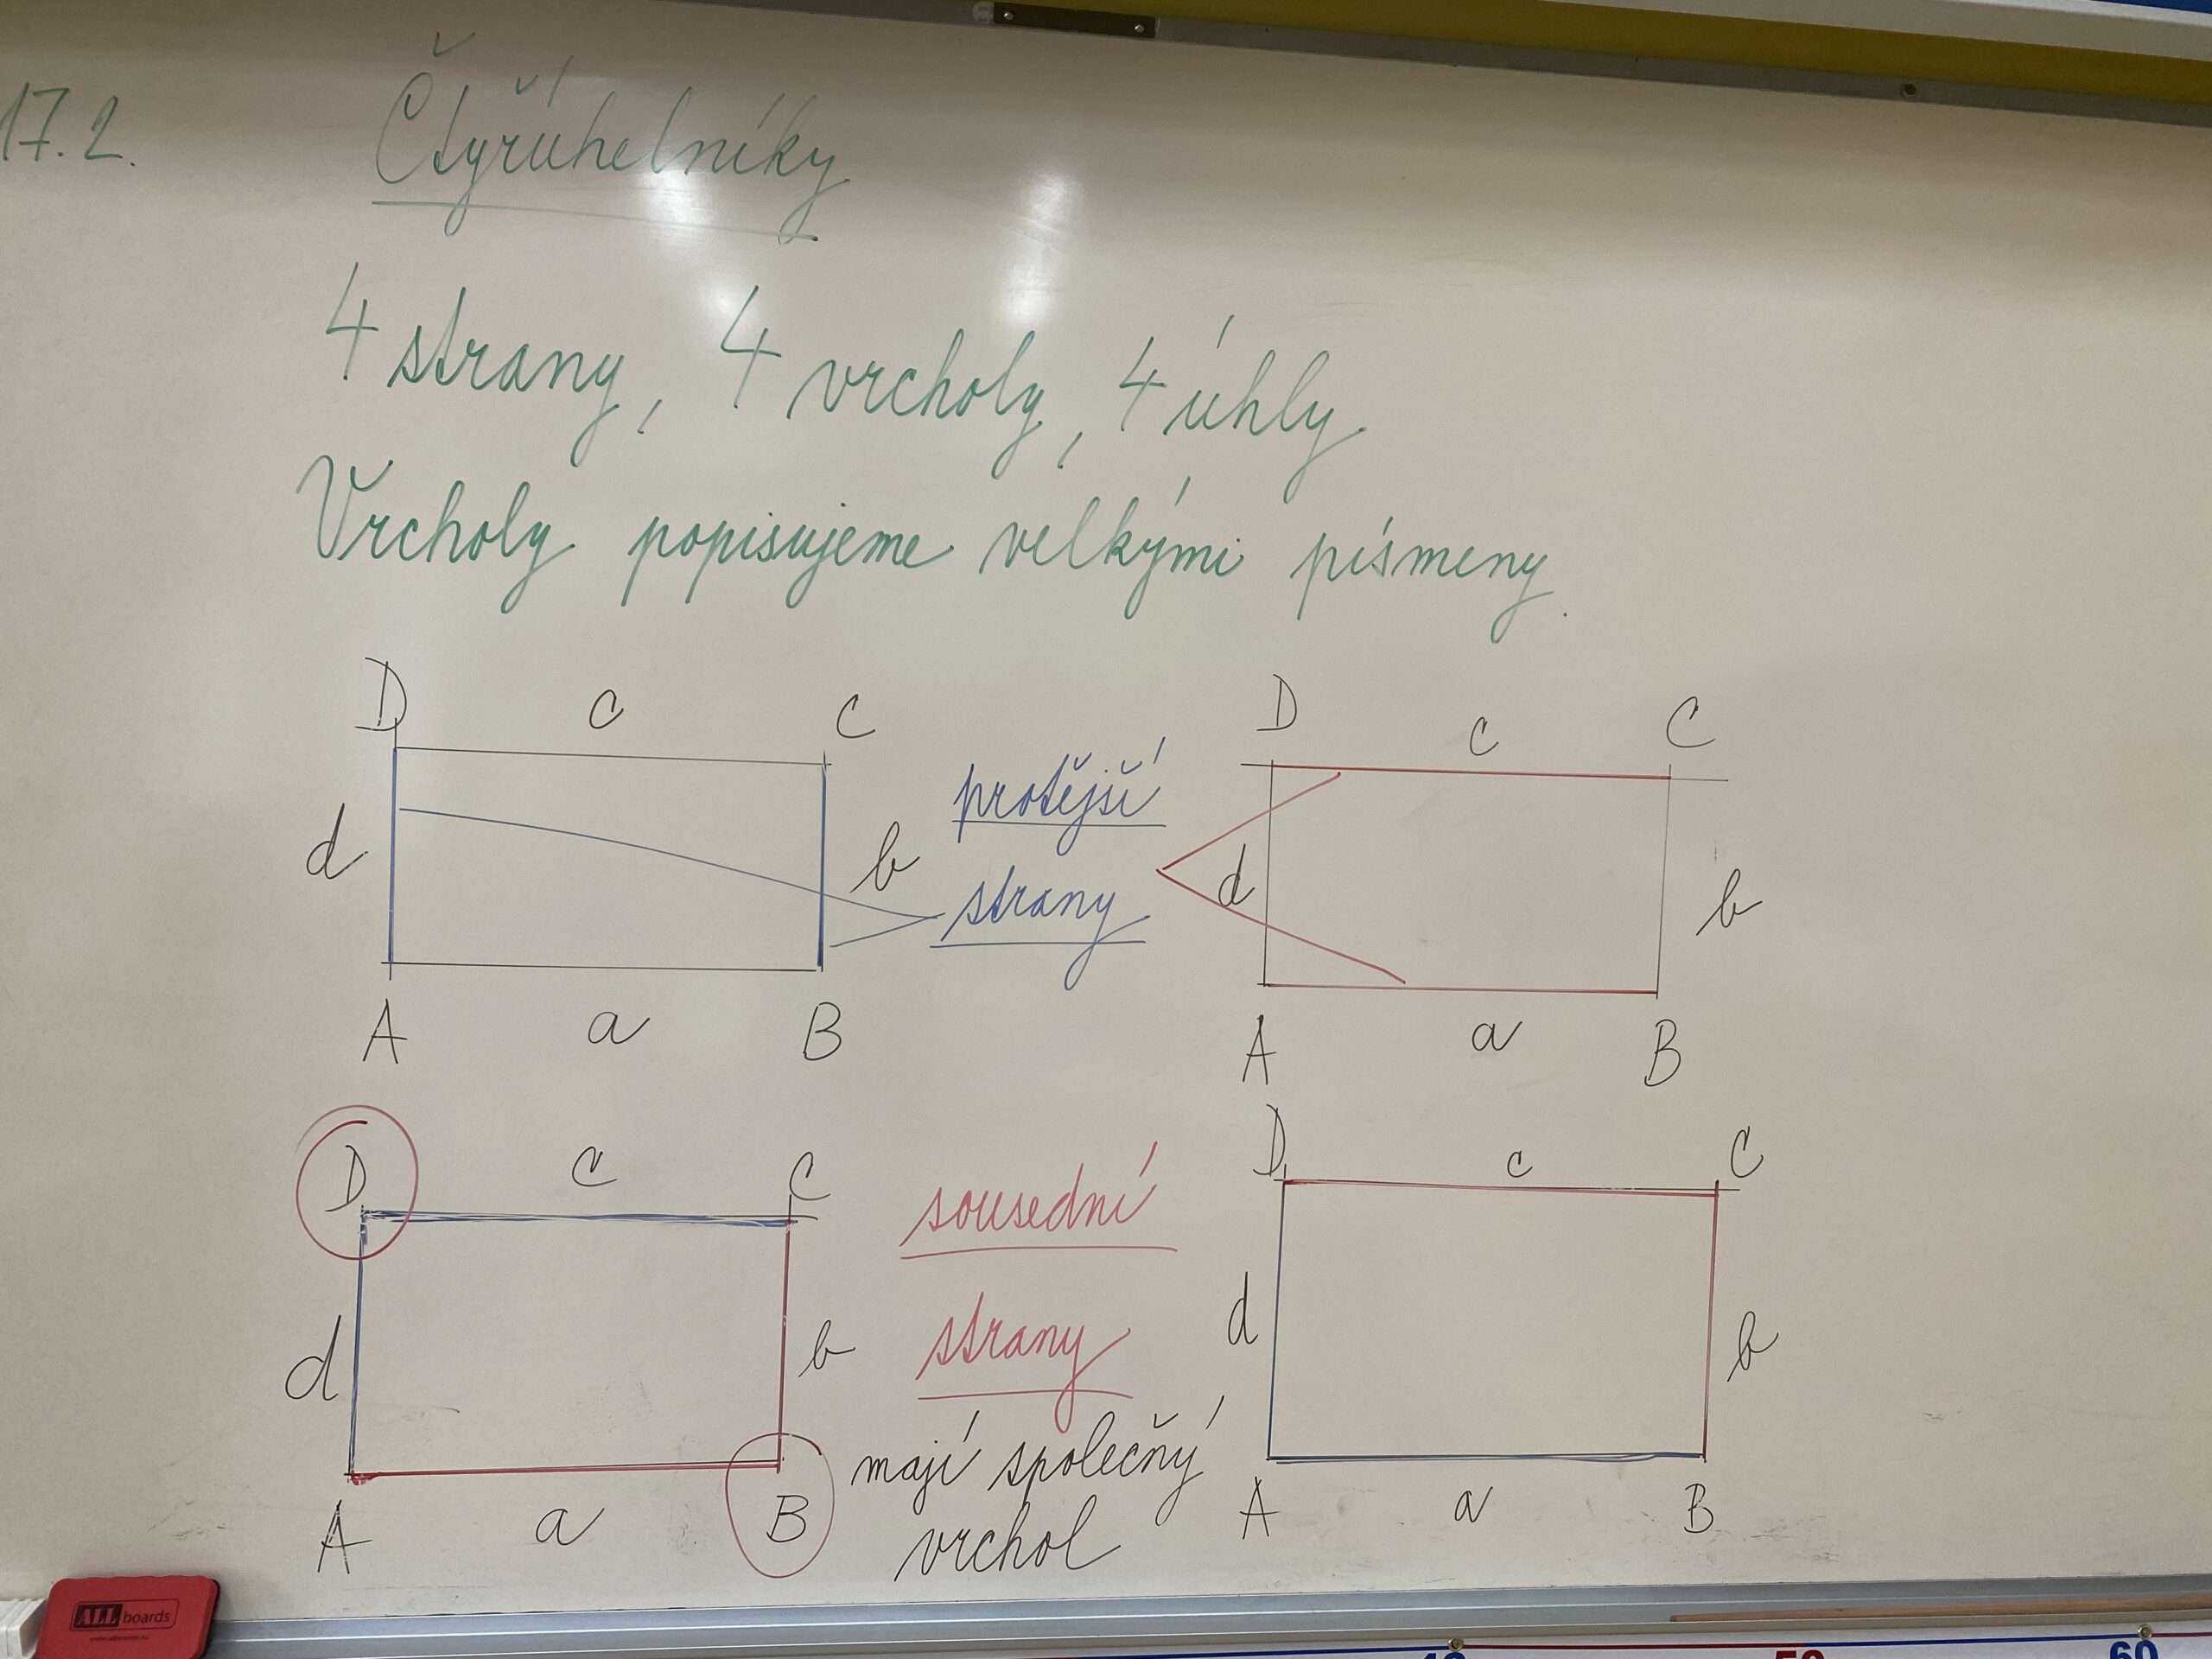 17.2.
Čtyřúhelníky
4 strany, 4 vrcholy, 4 úhly.
Vrcholy popisujeme velkými písmeny.
D c C
d b
A a B
protější
strany
D c C
d b
A a B
D c C
d b
A a B
sousední
strany
mají společný
vrchol
D c C
d b
A a B
ALL boards
www.allboards.eu
60